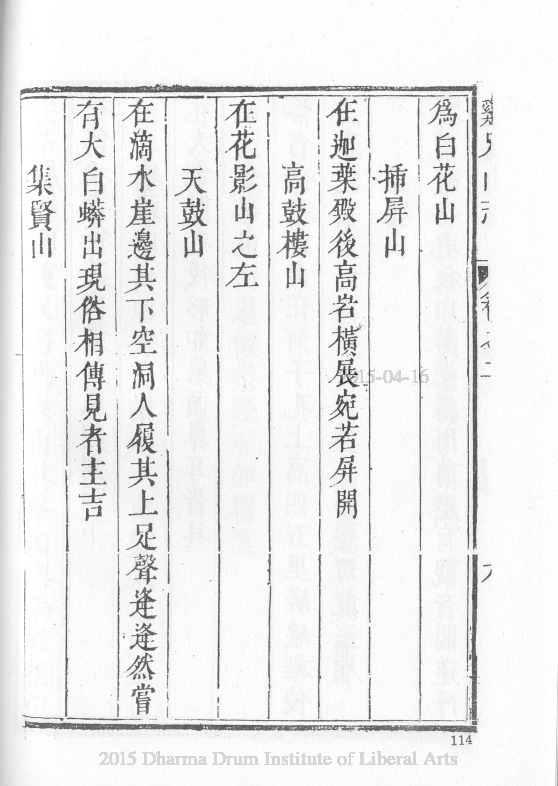 雞足山志 卷之二 九
為白花山
插屏山
在迦葉殿後高若橫展宛若屏開
高鼓樓山
在花影山之左
天鼓山
在滴水崖邊其下空洞人履其上足聲逢逢然嘗
有大白蟒出現俗相傳見者主吉
集賢山
2015-04-16
114
2015 Dharma Drum Institute of Liberal Arts